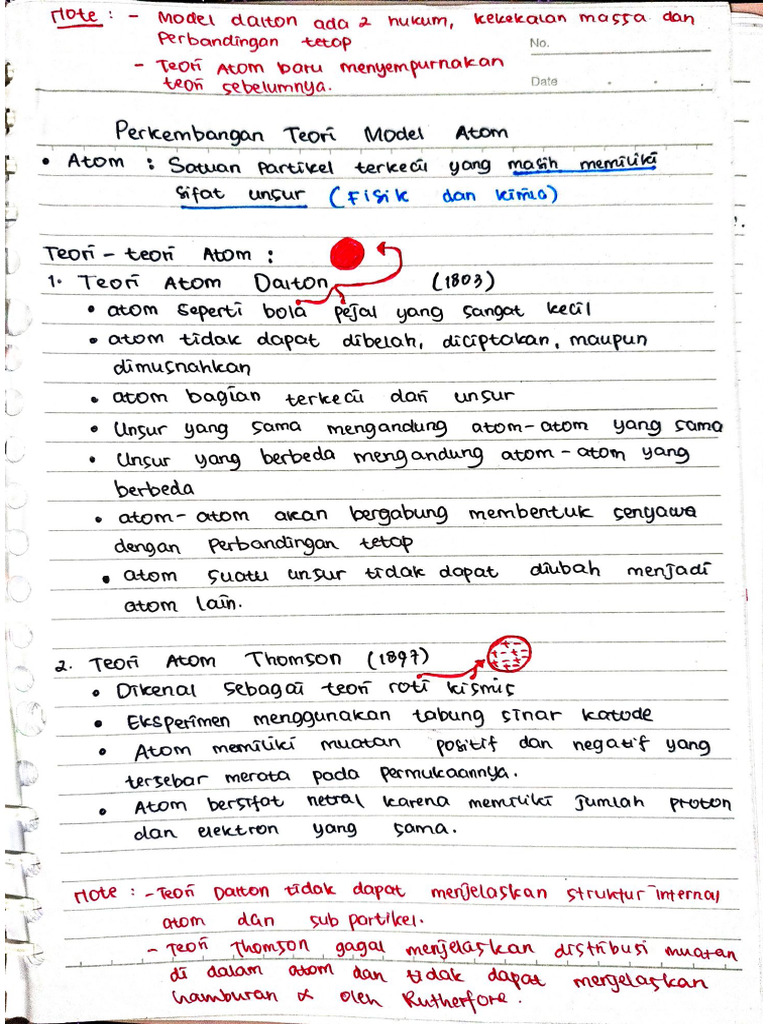 Note : - Model dalton ada 2 hukum, kekekalan massa dan
Perbandingan tetap
No.
- Teori Atom baru menyempurnakan
teori sebelumnya.
Date
Perkembangan Teori Model Atom
• Atom : Satuan partikel terkecil yang masih memiliki
sifat unsur (Fisik dan kimia)
Teori - teori Atom :
1. Teori Atom Dalton (1803)
• atom seperti bola pejal yang sangat kecil
• atom tidak dapat dibelah, diciptakan, maupun
dimusnahkan
• atom bagian terkecil dari unsur
• Unsur yang sama mengandung atom-atom yang sama
• Unsur yang berbeda mengandung atom-atom yang
berbeda
• atom-atom akan bergabung membentuk senyawa
dengan Perbandingan tetap
• atom suatu unsur tidak dapat diubah menjadi
atom lain.
2. Teori Atom Thomson (1897)
• Dikenal sebagai teori roti kismis
• Eksperimen menggunakan tabung sinar katode
• Atom memiliki muatan positif dan negatif yang
tersebar merata pada permukaannya.
• Atom bersifat netral karena memiliki jumlah proton
dan elektron yang sama.
Note : - Teori Dalton tidak dapat menjelaskan struktur internal
atom dan sub partikel.
- Teori Thomson gagal menjelaskan distribusi muatan
di dalam atom dan tidak dapat menjelaskan
hamburan α oleh Rutherfore.